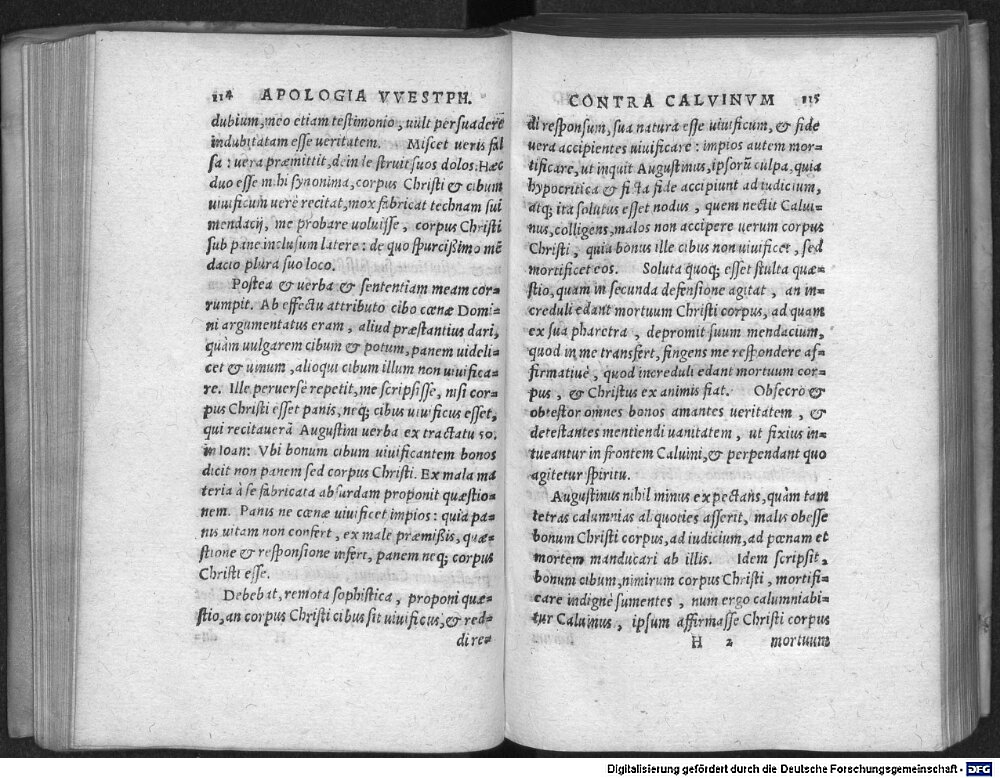 114 APOLOGIA VVESTPH.
dubium, meo etiam testimonio, uult persuadere
indubitatam esse ueritatem. Miscet ueris fal
sa: uera præmittit, dein le struit suos dolos. Hæc
duo esse mihi synonima, corpus Christi & cibum
uiuificum uerè recitat, mox fabricat technam sui
mendacij, me probare uoluisse, corpus Christi
sub pane inclusum latere: de quo spurcißimo mē
dacio plura suo loco.
Postea & uerba & sententiam meam cor=
rumpit. Ab effectu attributo cibo cœnæ Domi=
ni argumentatus eram, aliud præstantius dari,
quàm uulgarem cibum & potum, panem uideli=
cet & uinum, alioqui cibum illum non uiuifica=
re. Ille peruersè repetit, me scripsisse, nisi cor=
pus Christi esset panis, neq; cibus uiuificus esset,
qui recitauerā Augustini uerba ex tractatu 50.
in Ioan: Vbi bonum cibum uiuificantem bonos
dicit non panem sed corpus Christi. Ex mala ma
teria à se fabricata absurdam proponit quæstio=
nem. Panis ne cœnæ uiuificet impios: quia pa=
nis uitam non confert, ex male præmißis, quæ=
stione & responsione infert, panem neq; corpus
Christi esse.
Debebat, remota sophistica, proponi quæ=
stio, an corpus Christi cibus sit uiuificus, & red=
di re=
CONTRA CALVINVM 115
di responsum, sua natura esse uiuificum, & fide
uera accipientes uiuificare: impios autem mor=
tificare, ut inquit Augustinus, ipsorū culpa, quia
hypocritica & ficta fide accipiunt ad iudicium,
atq; ita solutus esset nodus, quem nectit Calui=
nus, colligens, malos non accipere uerum corpus
Christi, quia bonus ille cibus non uiuificet, sed
mortificet eos. Soluta quoq; esset stulta quæ=
stio, quam in secunda defensione agitat, an in=
creduli edant mortuum Christi corpus, ad quam
ex sua pharetra, depromit suum mendacium,
quod in me transfert, fingens me respondere af=
firmatiuè, quod increduli edant mortuum cor=
pus, & Christus ex animis fiat. Obsecro &
obtestor omnes bonos amantes ueritatem, &
detestantes mentiendi uanitatem, ut fixius in=
tueantur in frontem Caluini, & perpendant quo
agitetur spiritu.
Augustinus nihil minus expectans, quàm tam
tetras calumnias aliquoties asserit, malis obesse
bonum Christi corpus, ad iudicium, ad pœnam et
mortem manducari ab illis. Idem scripsit,
bonum cibum, nimirum corpus Christi, mortifi=
care indignè sumentes, num ergo calumniabi=
tur Caluinus, ipsum affirmasse Christi corpus
H 2 mortuum
Digitalisierung gefördert durch die Deutsche Forschungsgemeinschaft - DFG